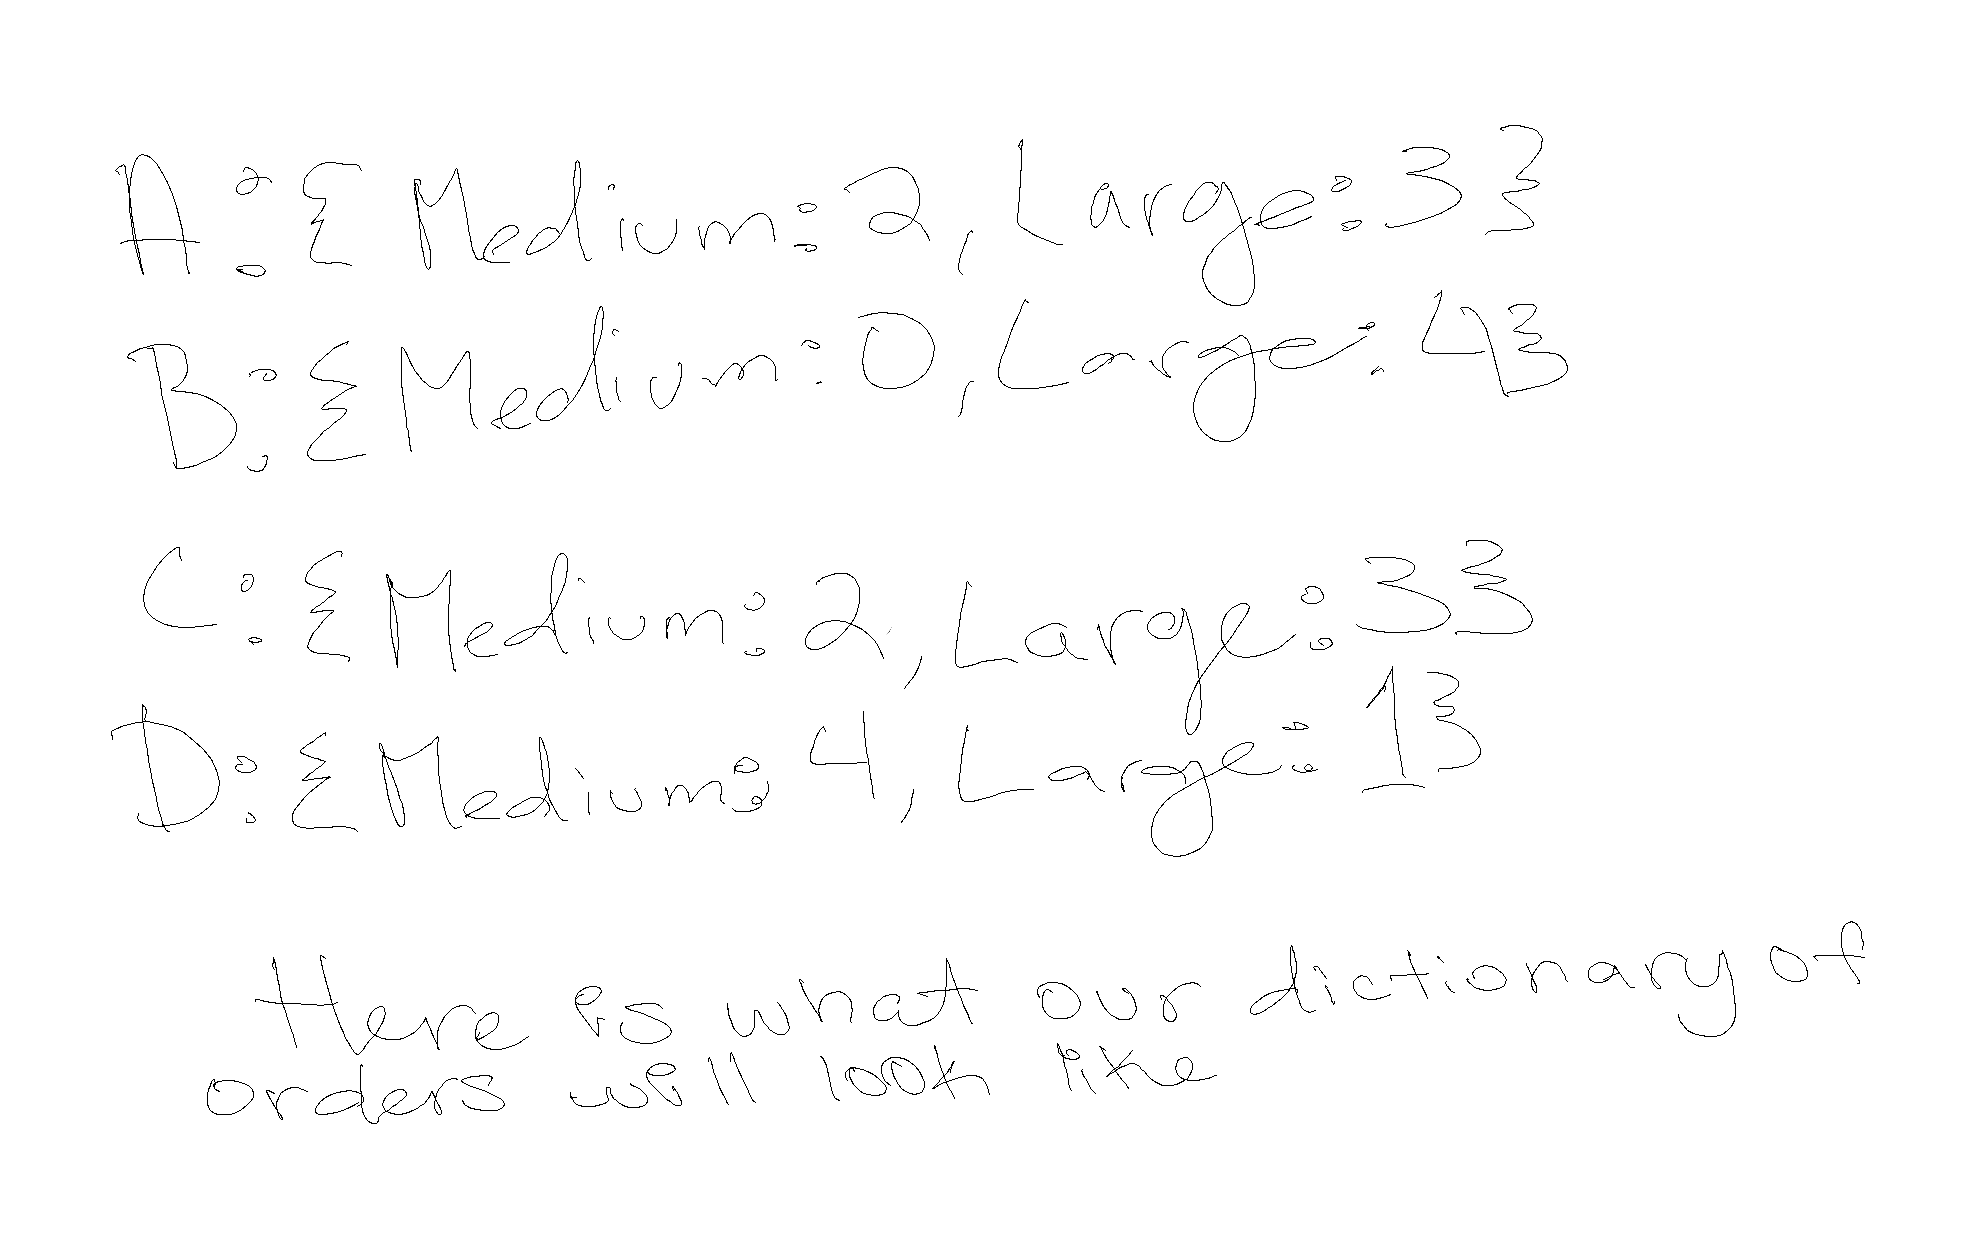 A: { Medium: 2, Large: 3 }
B: { Medium: 0, Large: 4 }
C: { Medium: 2, Large: 3 }
D: { Medium: 4, Large: 1 }
Here is what our dictionary of
orders will look like